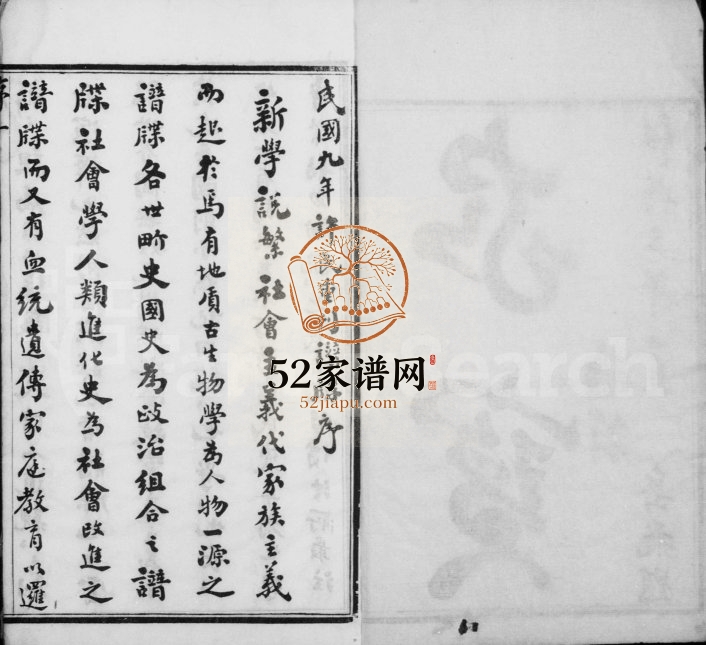 民國九年許氏重修譜牒序
新學説繁社會主義代家族主義
而起於焉有地質古生物學為人物一源之
譜牒各世斷史國史為政治組合之譜
牒社會學人類進化史為社會改進之
譜牒而又有血統遺傳家庭教育以邏
序一
52家谱网
52jiapu.com